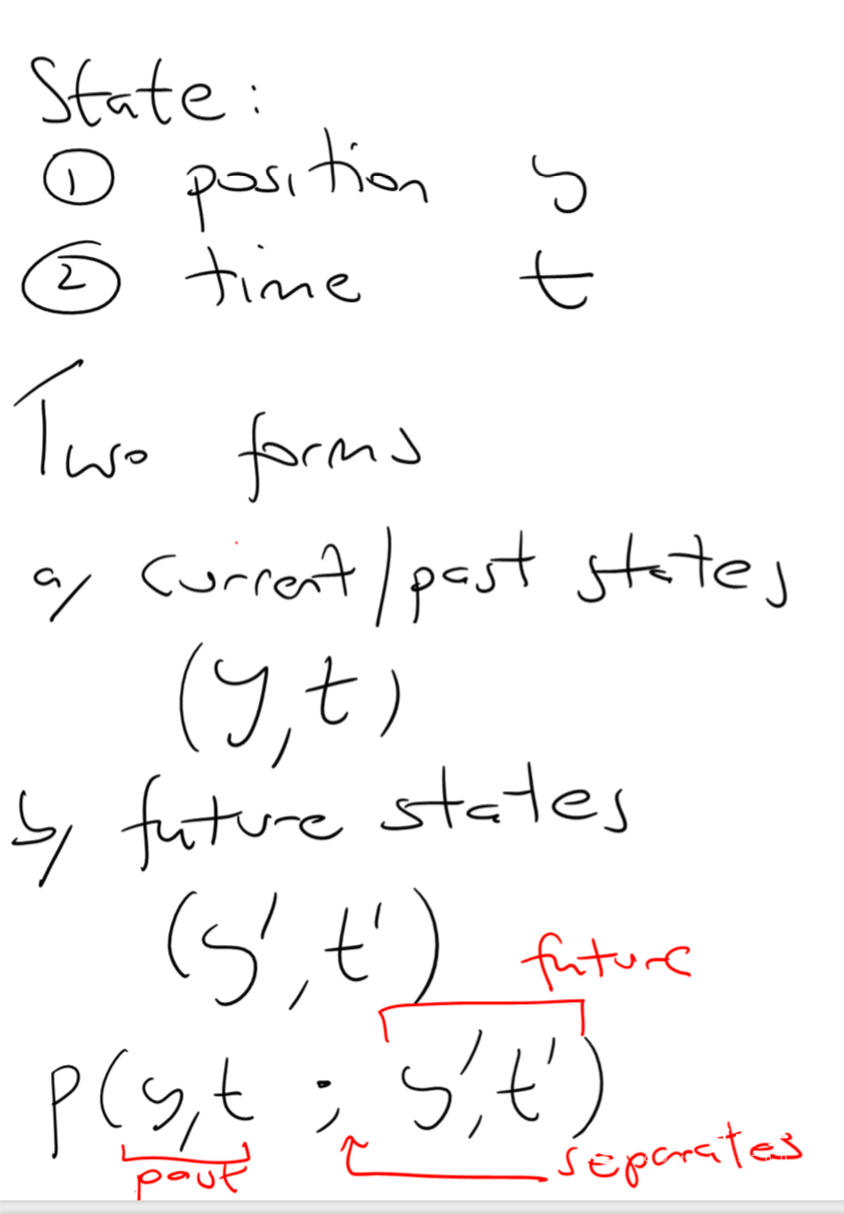 State:
① position y
② time t
Two forms
a/ current/past states
(y,t)
b/ future states
(y',t')
future
p(y,t ; y',t')
past
separates